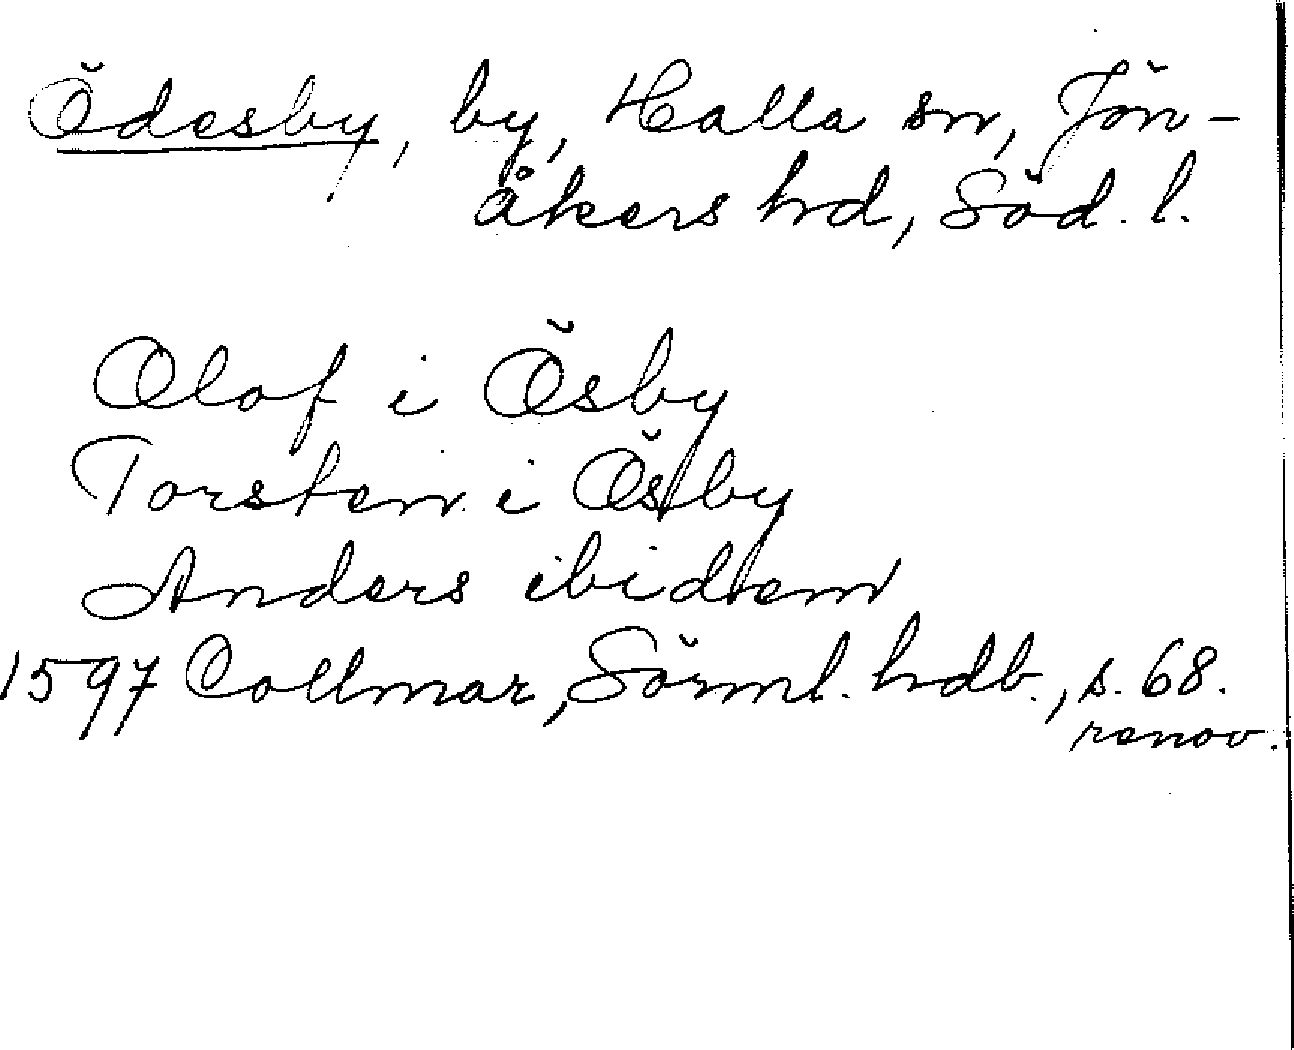 Ödesby, by, Halla sn, Jön-
åkers hd, Söd. l.
Olof i Ösby
Torsten i Ösby
Anders ibidem
1597 Collmar, Sörml. hdb., s. 68.
renov.